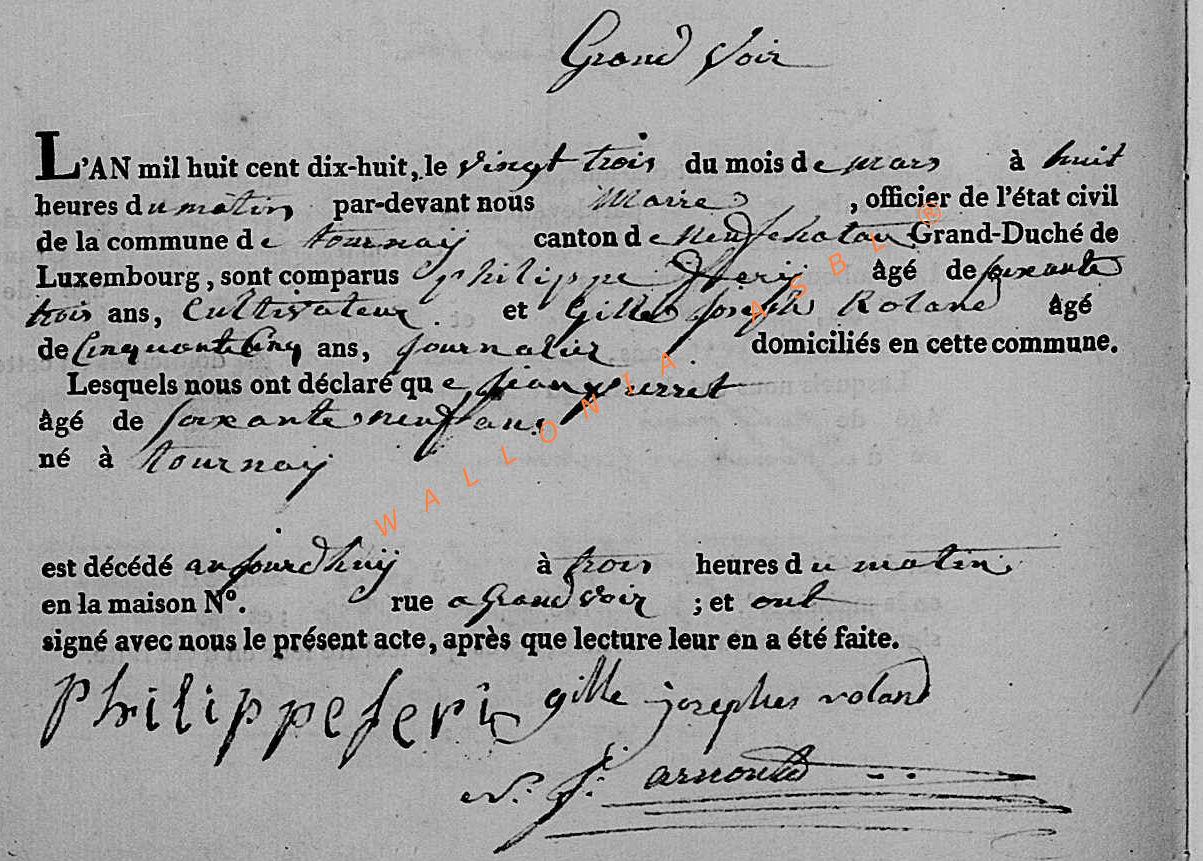 Grand Voir
L'AN mil huit cent dix-huit, le vingt trois du mois de mars à huit
heures du matin par-devant nous Maire, officier de l'état civil
de la commune de tournay canton de Neufchatau Grand-Duché de
Luxembourg, sont comparus philippe âgé de soixante
trois ans, Cultivateur et Gille Joseph Roland âgé
de Cinquante Cinq ans, journalier domiciliés en cette commune.
Lesquels nous ont déclaré que jean pierret
âgé de soixante neuf ans
né à tournay
est décédé aujourdhuy à trois heures du matin
en la maison N°. rue a Grand voir ; et ont
signé avec nous le présent acte, après que lecture leur en a été faite.
Philippe feri gille josephes roland
arnould
WALLONIA ASBL ®